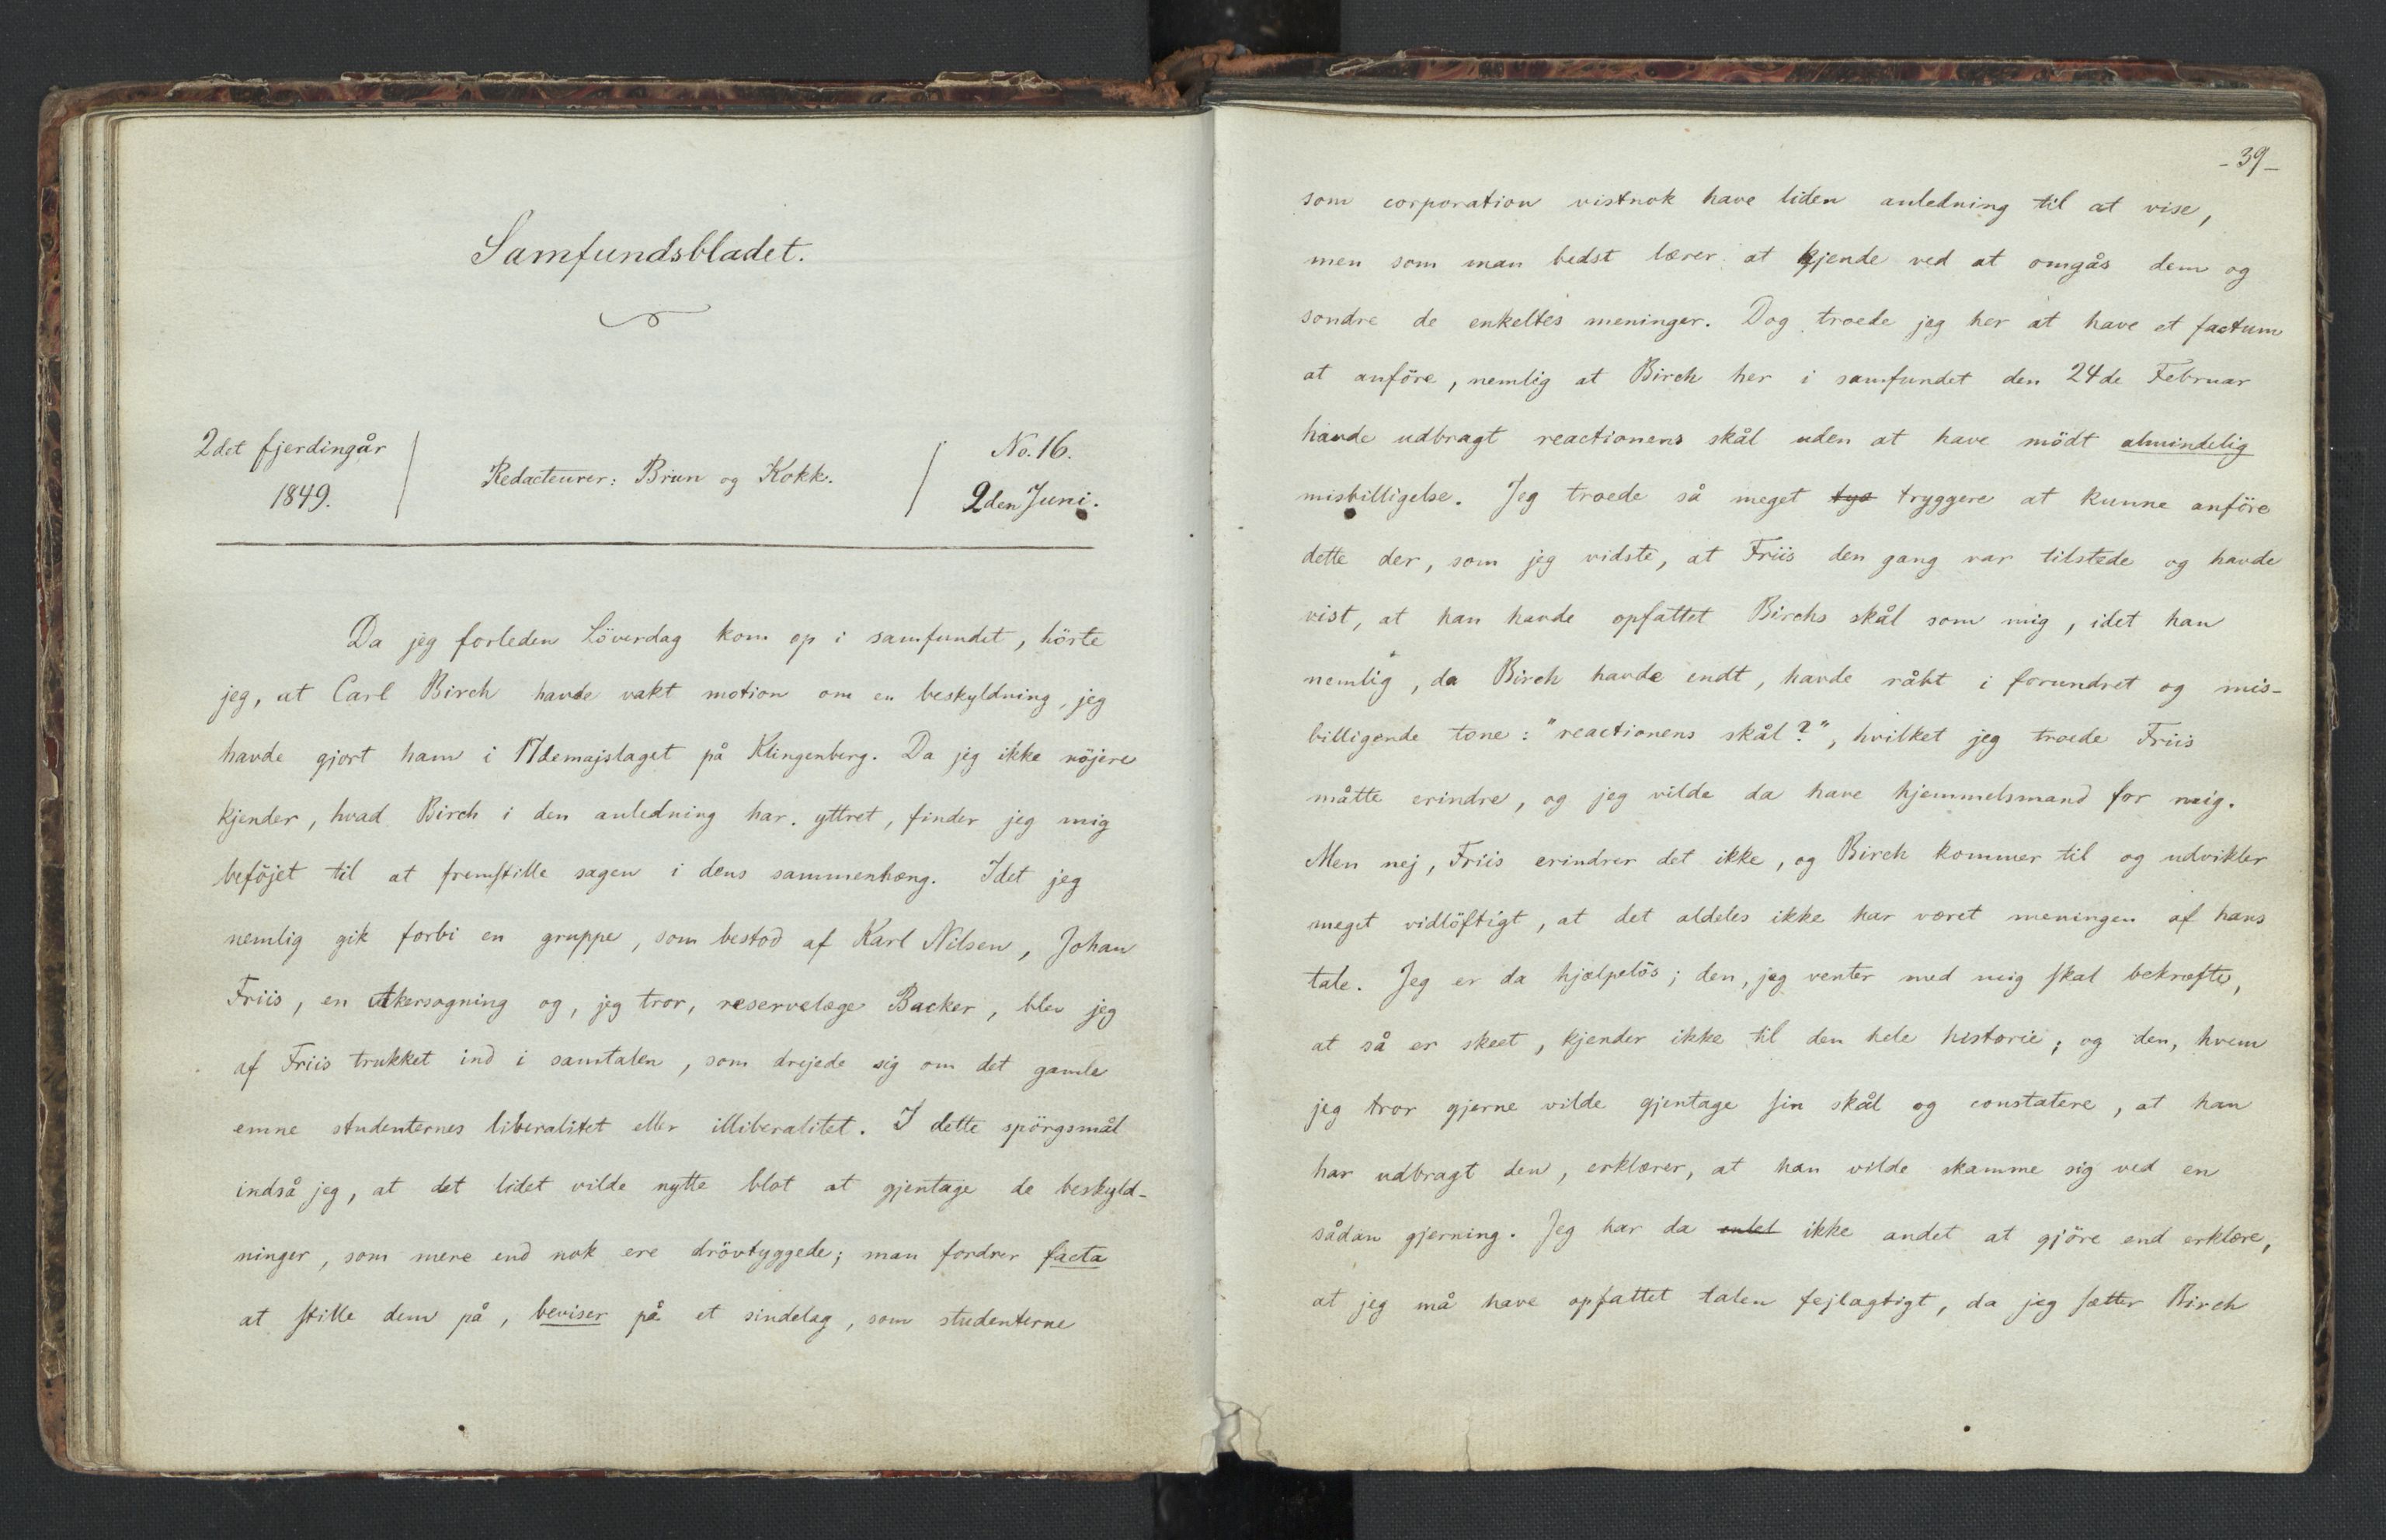 Samfundsbladet.
2det fjerdingår
1849.
Redacteurer: Brun og Kokk.
No. 16.
2den Juni.
Da jeg forleden Löverdag kom op i samfundet, hörte
jeg, at Carl Birch havde vakt motion om en beskyldning, jeg
havde gjort ham i 17demajslaget på Klingenberg. Da jeg ikke nöjere
kjender, hvad Birch i den anledning har yttret, finder jeg mig
beföjet til at fremstille sagen i dens sammenhæng. Idet jeg
nemlig gik forbi en gruppe, som bestod af Karl Nilsen, Johan
Friis, en Akersogning og, jeg tror, reservelæge Backer, blev jeg
af Friis trukket ind i samtalen, som drejede sig om det gamle
emne studenternes liberalitet eller illiberalitet. I dette spörgsmål
indså jeg, at det lidet vilde nytte blot at gjentage de beskyld-
ninger, som mere end nok ere drövtyggede; man fordrer facta
at stille dem på, beviser på et sindelag, som studenterne
-39-
som corporation vistnok have liden anledning til at vise,
men som man bedst lærer at kjende ved at omgås dem og
sondre de enkeltes meninger. Dog troede jeg her at have et factum
at anföre, nemlig at Birch her i samfundet den 24de Februar
havde udbragt reactionens skål uden at have mödt almindelig
misbilligelse. Jeg troede så meget tys tryggere at kunne anföre
dette der, som jeg vidste, at Friis den gang var tilstede og havde
vist, at han havde opfattet Birchs skål som mig, idet han
nemlig, da Birch havde endt, havde råbt i forundret og mis-
billigende tone: "reactionens skål?", hvilket jeg troede Friis
måtte erindre, og jeg vilde da have hjemmelsmand for mig.
Men nej, Friis erindrer det ikke, og Birch kommer til og udvikler
meget vidlöftigt, at det aldeles ikke har været meningen af hans
tale. Jeg er da hjælpelös; den, jeg venter med mig skal bekræfte,
at så er skeet, kjender ikke til den hele historie; og den, hvem
jeg tror gjerne vilde gjentage sin skål og constatere, at han
har udbragt den, erklærer, at han vilde skamme sig ved en
sådan gjerning. Jeg har da ikke andet at gjöre end erklære,
at jeg må have opfattet talen fejlagtigt, da jeg sætter Birch